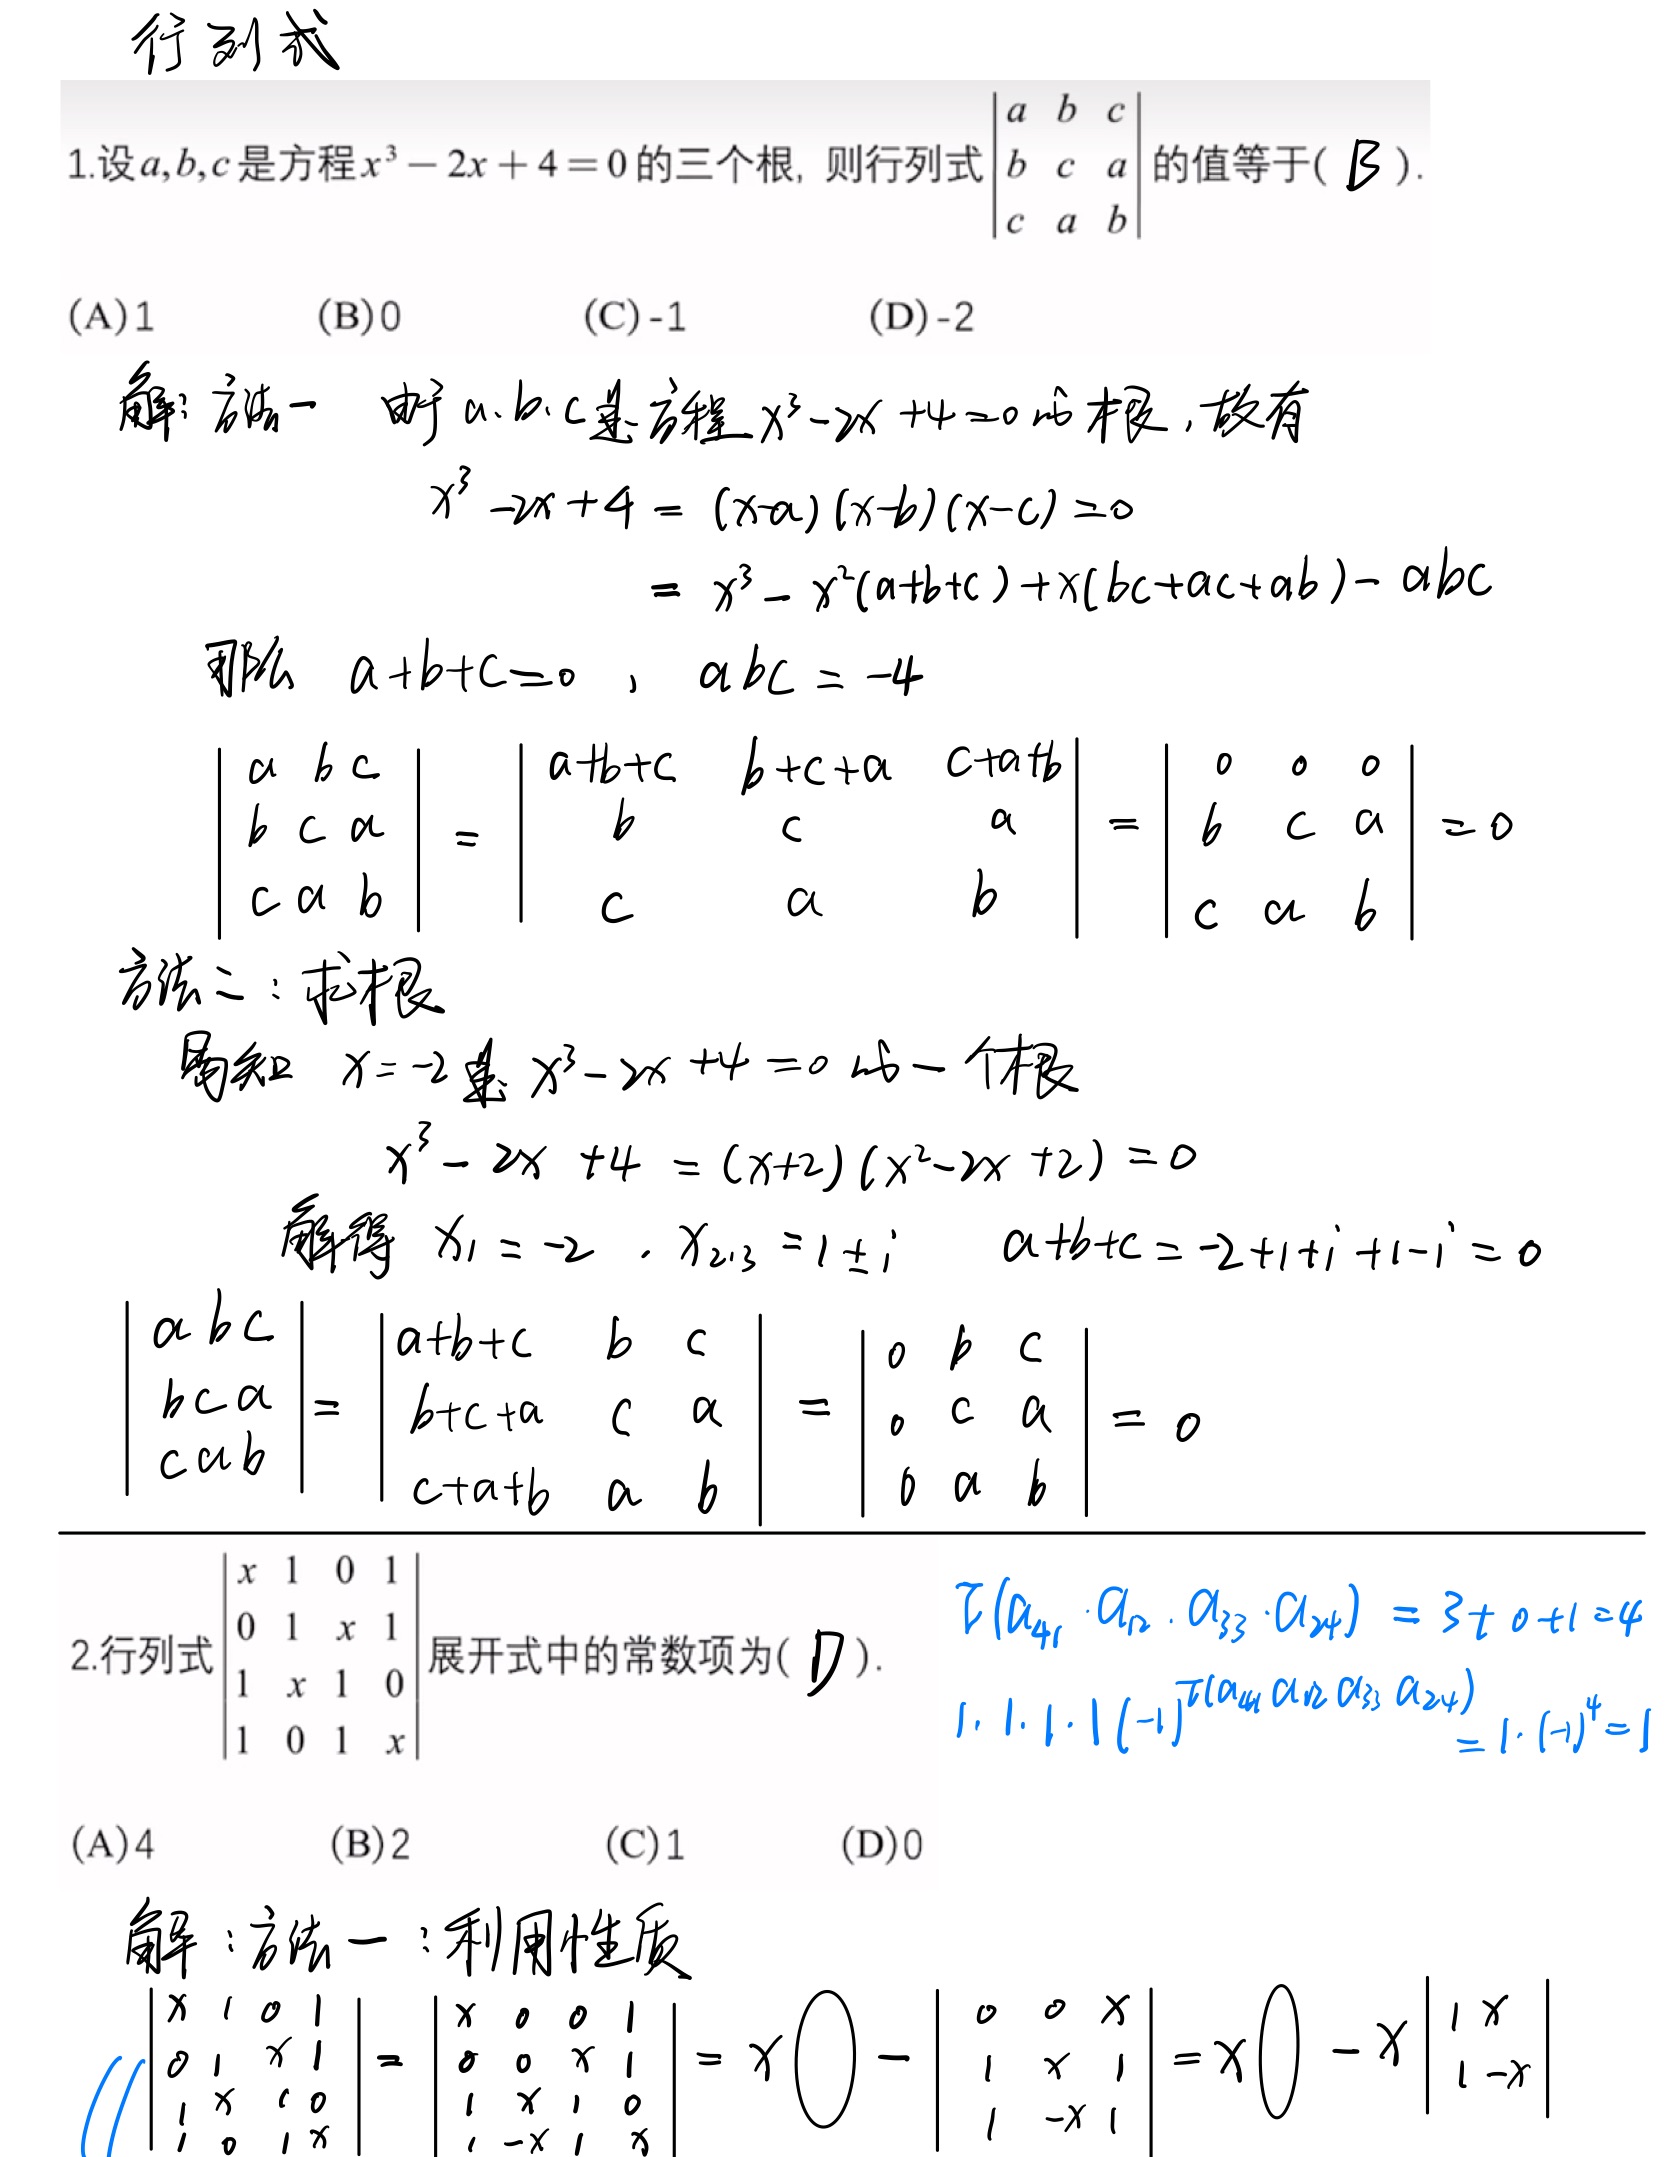 行列式
1.设a,b,c是方程x³－2x＋4＝0的三个根，则行列式|a b c; b c a; c a b|的值等于( B ).
(A)1 (B)0 (C)-1 (D)-2
解：方法一 由于a、b、c是方程x³-2x+4=0的根，故有
x³-2x+4 = (x-a)(x-b)(x-c)=0
= x³-x²(a+b+c)+x(bc+ac+ab)-abc
那么 a+b+c=0， abc=-4
|a b c; b c a; c a b| = |a+b+c b+c+a c+a+b; b c a; c a b| = |0 0 0; b c a; c a b| =0
方法二：求根
易知 x=-2是x³-2x+4=0的一个根
x³-2x+4 = (x+2)(x²-2x+2)=0
解得 x₁=-2 . x₂,₃=1±i a+b+c=-2+1+i+1-i=0
|a b c; b c a; c a b| = |a+b+c b c; b+c+a c a; c+a+b a b| = |0 b c; 0 c a; 0 a b| = 0
2.行列式|x 1 0 1; 0 1 x 1; 1 x 1 0; 1 0 1 x|展开式中的常数项为( D ).
τ(a₄₁·a₁₂·a₃₃·a₂₄) = 3+0+1=4
1·1·1·1(-1)^τ(a₄₁a₁₂a₃₃a₂₄)
=1·(-1)⁴=1
(A)4 (B)2 (C)1 (D)0
解：方法一：利用性质
|x 1 0 1; 0 1 x 1; 1 x 1 0; 1 0 1 x| = |x 0 0 1; 0 0 x 1; 1 x 1 0; 1 -x 1 x| = x - |0 0 x; 1 x 1; 1 -x 1| = x - x|1 x; 1 -x|